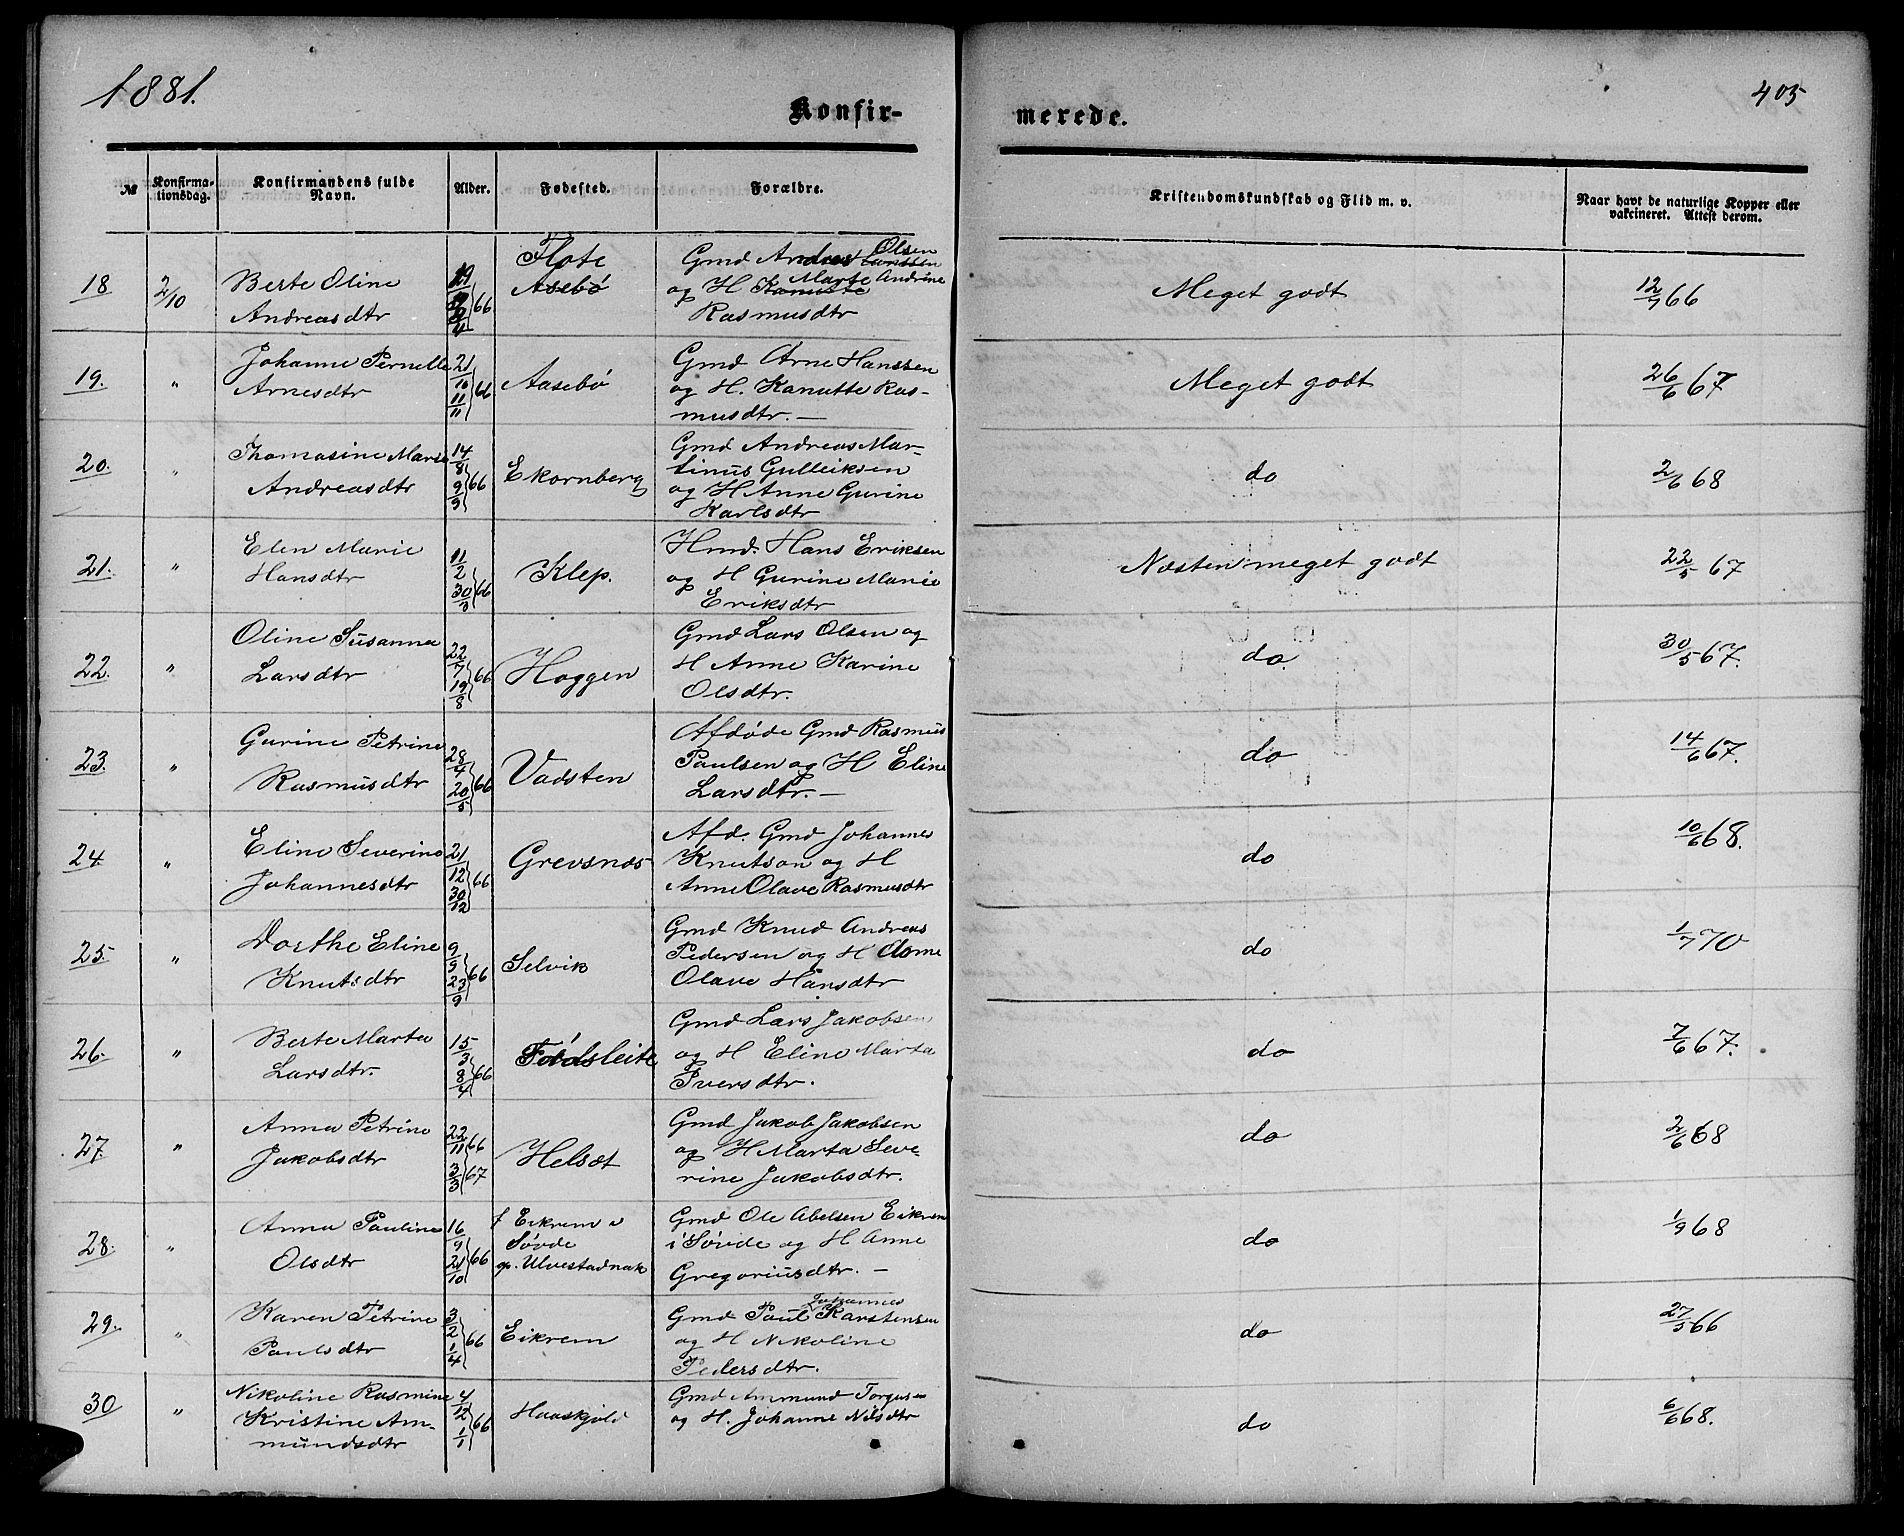 1881.
405
Konfir-
merede.
№
Konfirma-
tionsdag.
Konfirmandens fulde
Navn.
Alder.
Fødested.
Forældre.
Kristendomskundskab og Flid m. v.
Naar havt de naturlige Kopper eller
vakcineret. Attest derom.
18
2/10
Berte Oline
Andreasdtr
66
Flote
Asebø
Gmd Andreas Olsen
og H Marte Andrine
Rasmusdtr
Meget godt
12/7 66
19.
"
Johanne Pernelle
Arnesdtr
21/10 11/11 66
Aasebö
Gmd Arne Hanssen
og H. Kanutte Ras-
musdtr. —
Meget godt
26/6 67
20.
"
Thomasine Marie
Andreasdtr
14/8 9/9 66
Ekornberg
Gmd Andreas Mar-
tinus Gulleiksen
og H Anne Gurine
Karlsdtr
do
2/6 68
21.
"
Elen Marie
Hansdtr
11/2 30/3 66
Klep.
Hmd. Hans Eriksen
og H Gurine Marie
Eriksdtr
Næsten meget godt
22/5 67
22.
"
Oline Susanna
Larsdtr
22/7 19/8 66
Hoggen
Gmd Lars Olsen og
H Anne Karine
Olsdtr.
do.
30/5 67.
23.
"
Gurine Petrine
Rasmusdtr
28/4 20/5 66
Vadsten
Afdøde Gmd Rasmus
Paulsen og H Eline
Larsdtr. —
do
14/6 67.
24
"
Eline Severine
Johannesdtr
21/12 30/12 66
Grevsnæs
Afd. Gmd Johannes
Knutson og H
Anne Olave Rasmusdtr
do
10/6 68.
25.
"
Dorthe Eline
Knutsdtr
9/9 23/9 66
Selvik
Gmd Knud Andreas
Pedersen og H Anne
Olave Hansdtr
do
1/7 70
26.
"
Berte Marta
Larsdtr.
15/3 8/4 66
Födsleite
Gmd Lars Jakobsen
og H Eline Marta
Iversdtr.
do
7/6 67.
27.
"
Anna Petrine
Jakobsdtr
22/11 66
3/3 67
Helset
Gmd Jakob Jakobsen
og H Marta Seve-
rine Jakobsdtr.
do
2/6 68
28.
"
Anna Pauline
Olsdtr
16/9 21/10 66
f Eikrem i
Søvde
op. Ulvestadnak
Gmd Ole Abelsen Eikrem
i Søvde og H Anne
Gregoriusdtr. —
do
1/9 68
29.
"
Karen Petrine
Paulsdtr
3/2 1/4 66
Eikrem
Gmd Paul Johannes Karstensen
og H Nikoline
Pedersdtr.
do
27/5 66
30
"
Nikoline Rasmine
Kristine Am-
mundsdtr
4/12 1/1 66
Haaskjold
Gmd Ammund Torgus-
og H. Johanne Nilsdtr
do
6/6 68.